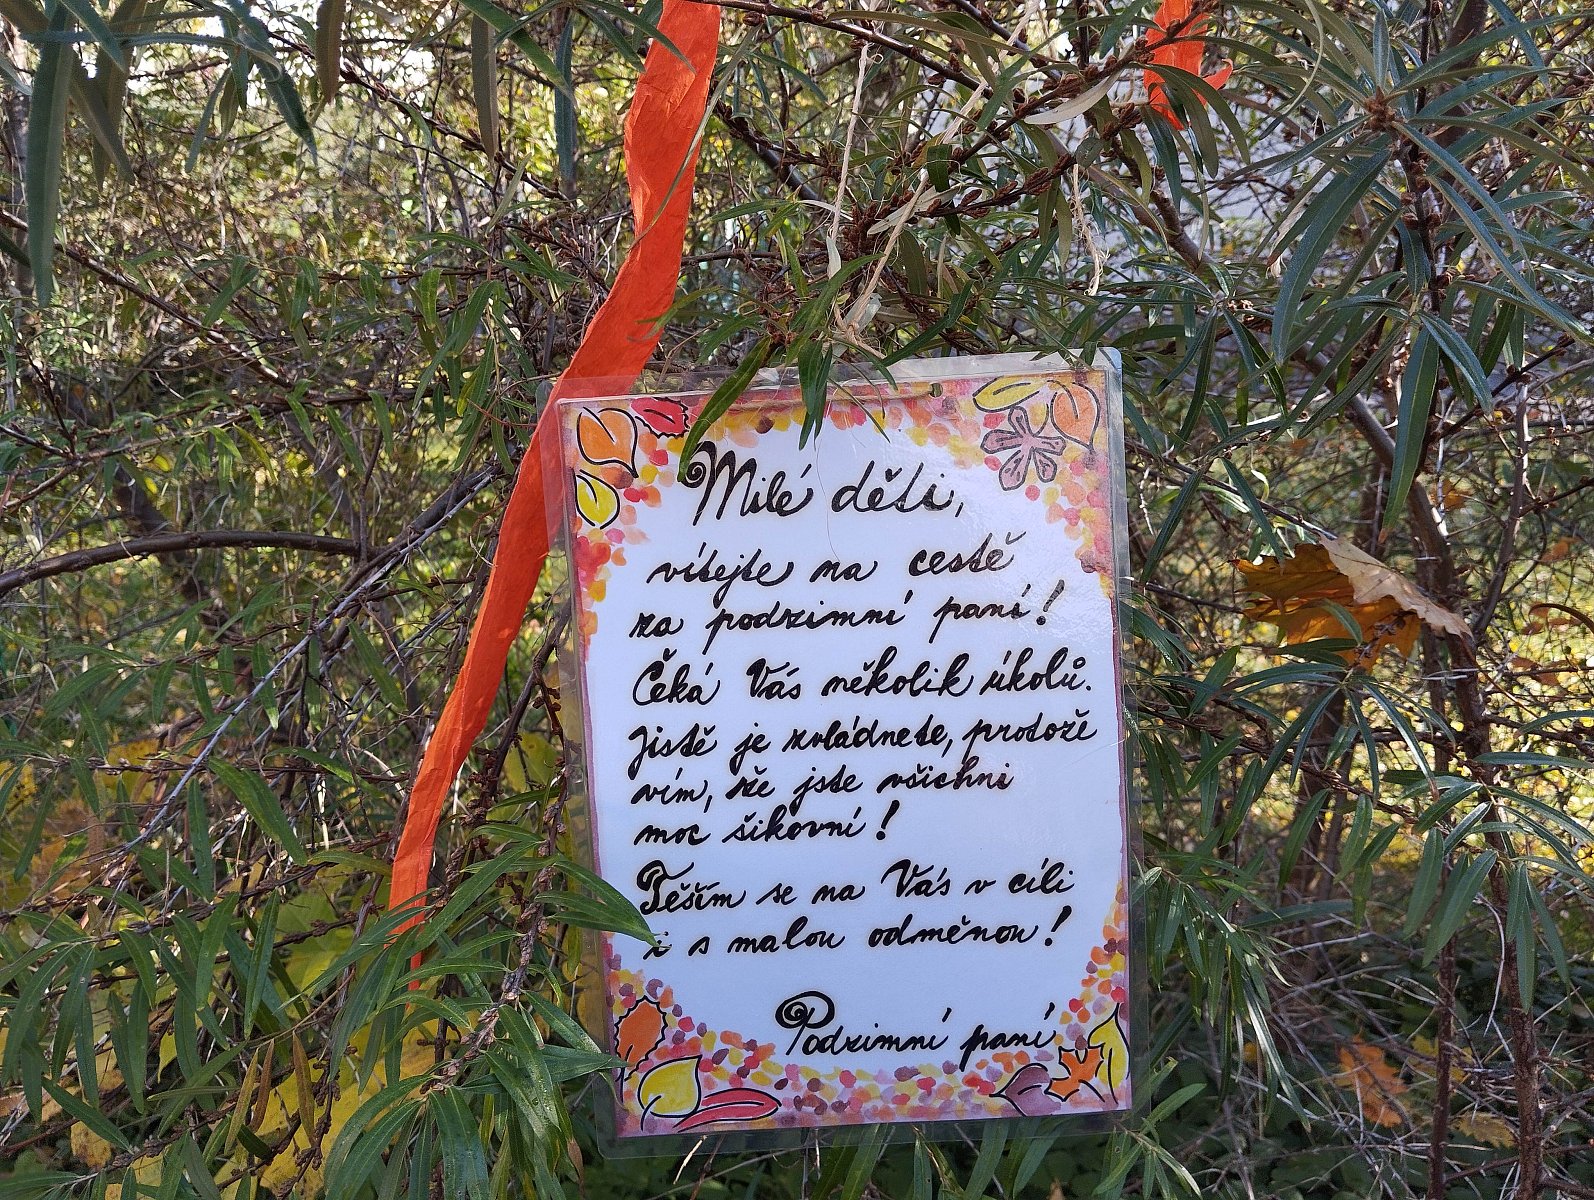 Milé děti,
vítejte na cestě
za podzimní paní!
Čeká Vás několik úkolů.
Jistě je zvládnete, protože
vím, že jste všichni
moc šikovní!
Těším se na Vás v cíli
i s malou odměnou!
Podzimní paní